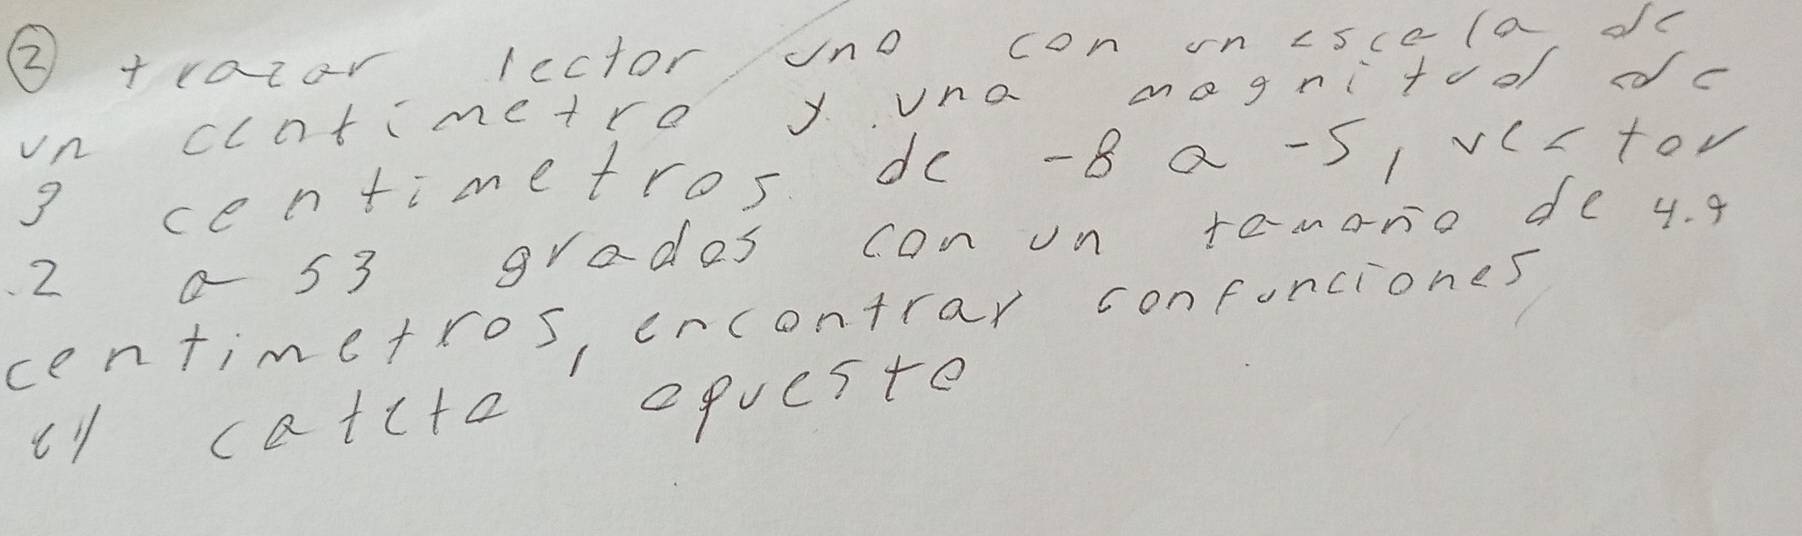 ② trazar lector uno con un escala de
un centimetro y una magnitud de
3 centimetros de -8 a -5, vector
.2 a 53 grados con un tamaño de 4.9
centimetros, encontrar confunciones
el cateto opuesto